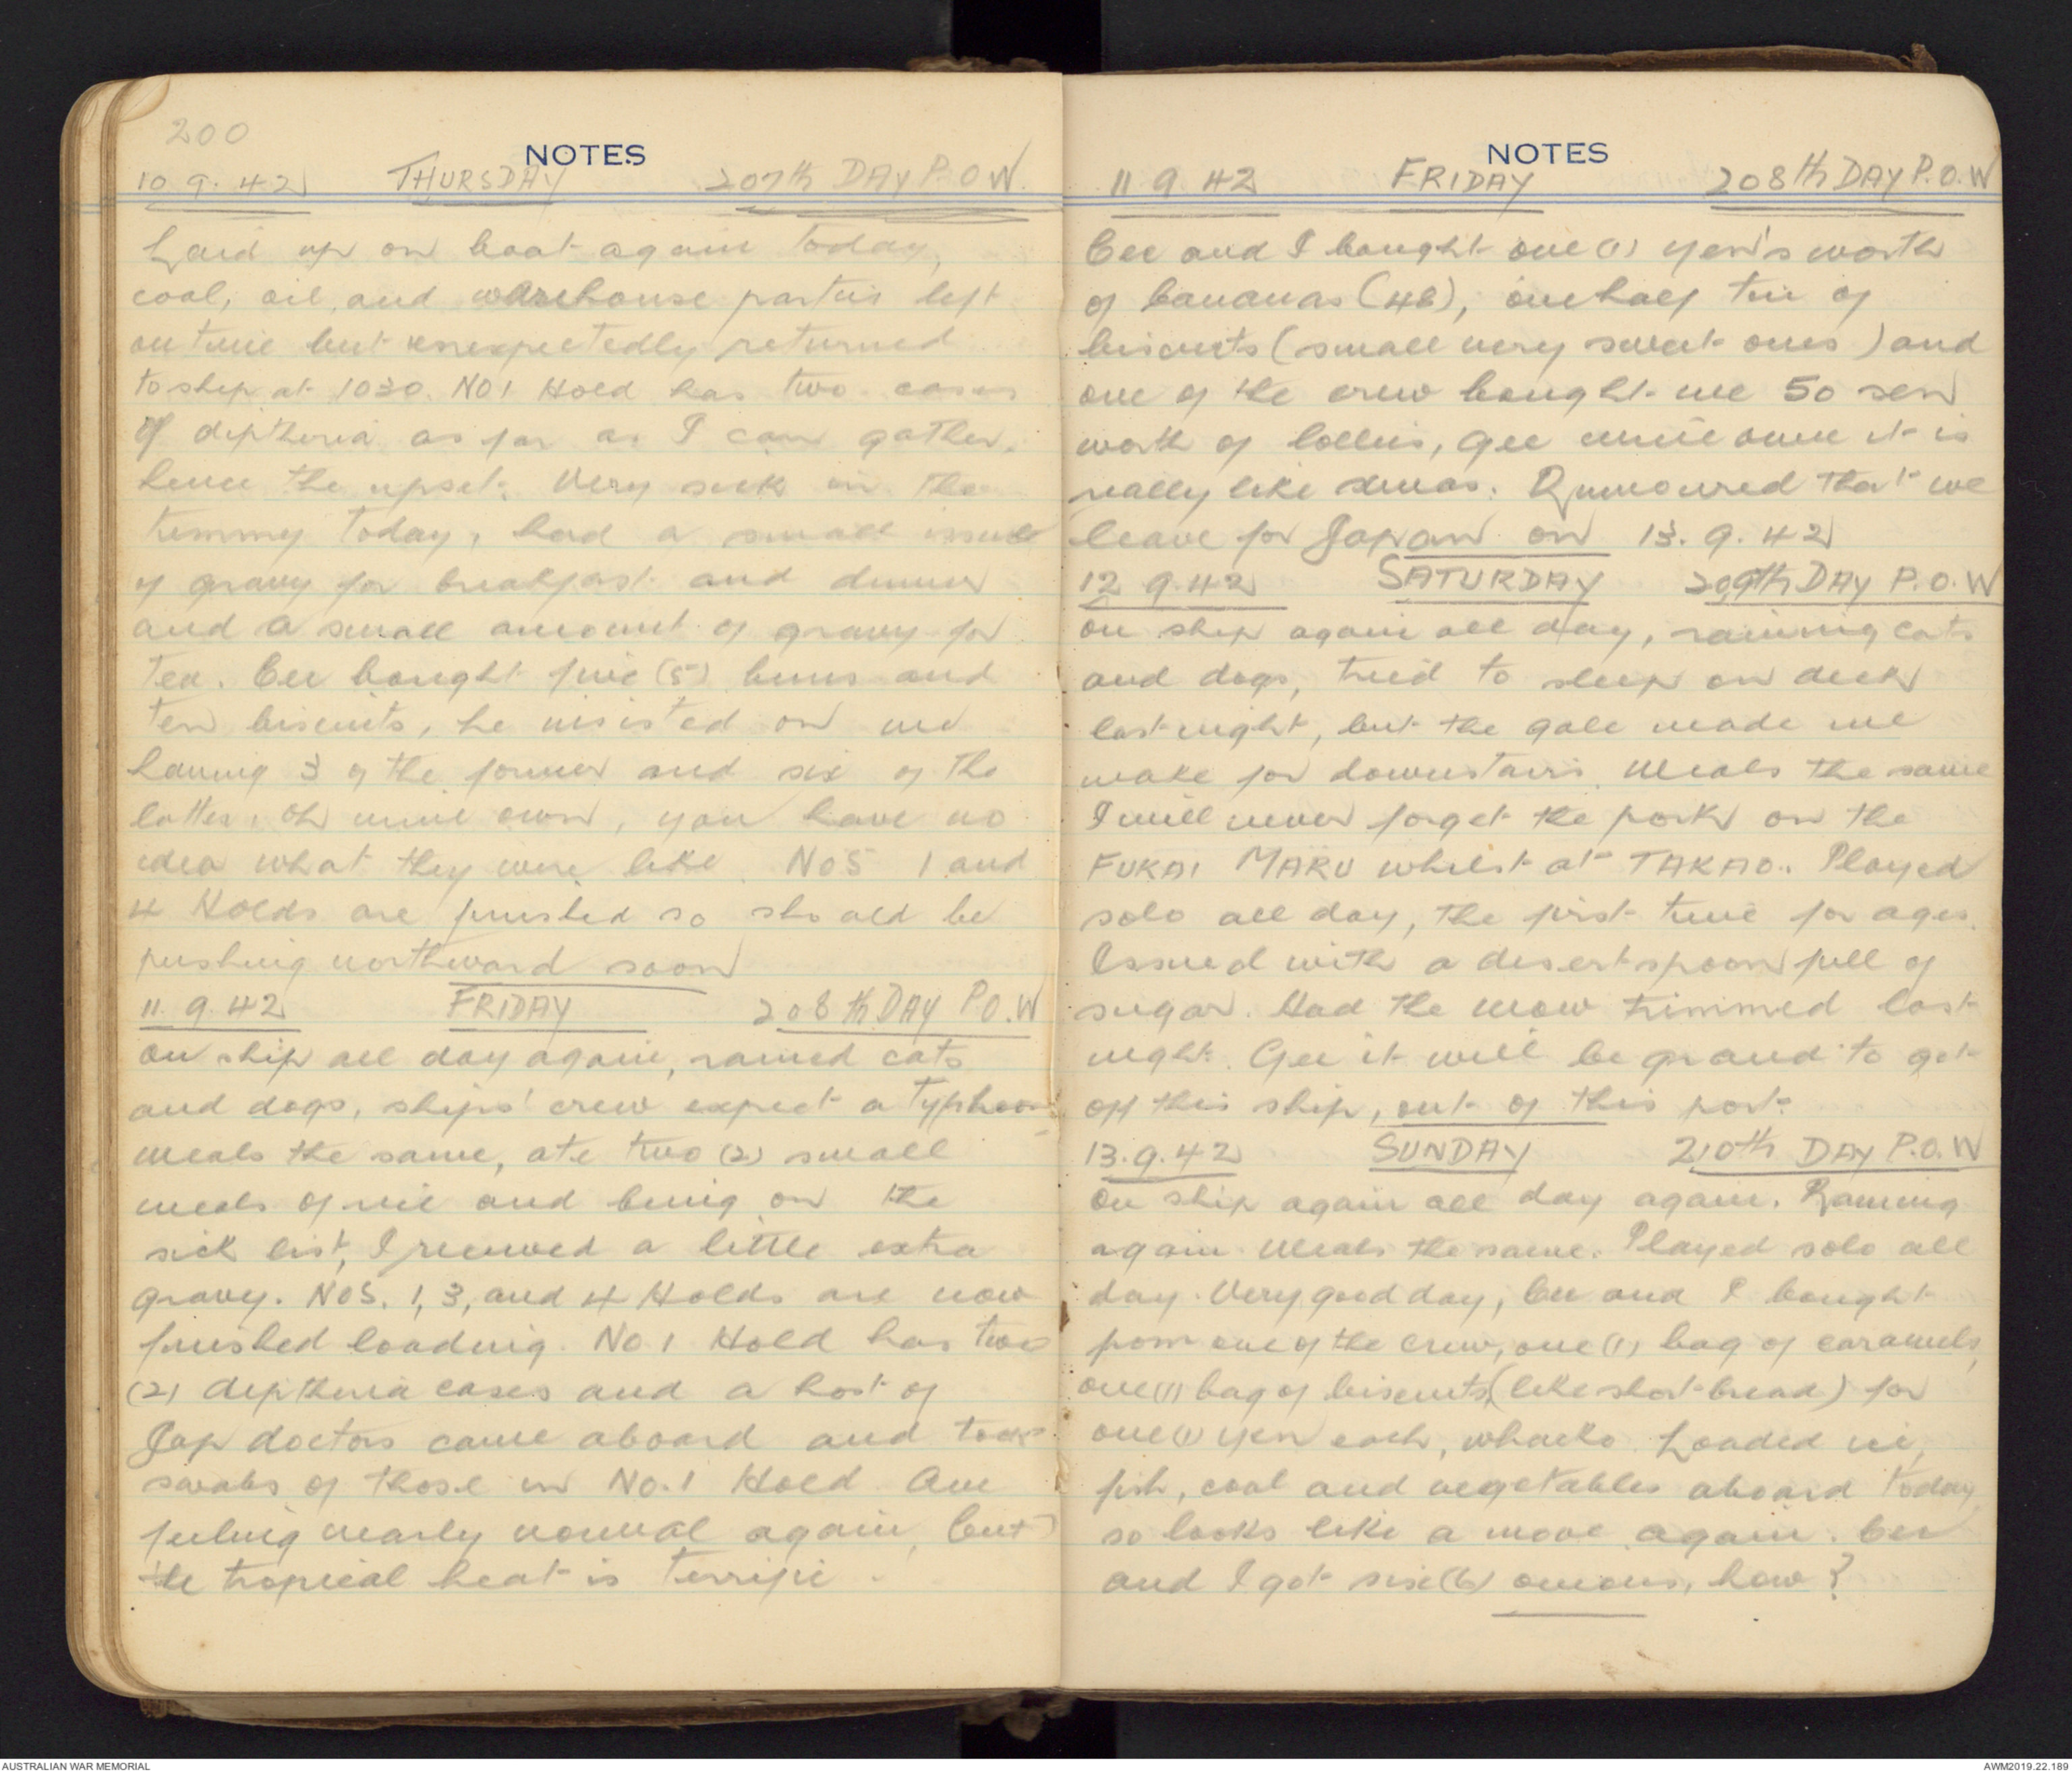 200
NOTES
10.9.42 THURSDAY 207th DAY P.O.W.
Laid up on boat again today,
coal, oil, and warehouse parties left
on time but unexpectedly returned
to ship at 1030. NO 1 Hold has two cases
of diptheria as far as I can gather,
hence the upset. Very sick in the
tummy today, had a small issue
of gravy for breakfast and dinner
and a small amount of gravy for
tea. Cec bought five (5) buns and
ten biscuits, he insisted on me
having 3 of the former and six of the
latter, oh mine own, you have no
idea what they were like. NOS 1 and
4 Holds are finished so should be
pushing northward soon
11.9.42 FRIDAY 208th DAY P.O.W
On ship all day again, rained cats
and dogs, ships' crew expect a typhoon
meals the same, ate two (2) small
meals of rice and being on the
sick list, I received a little extra
gravy. NOS. 1, 3, and 4 Holds are now
finished loading. No 1 Hold has two
(2) diptheria cases and a host of
Jap doctors came aboard and took
swabs of those in No. 1 Hold. Am
feeling nearly normal again, but
the tropical heat is terrific.
NOTES
11.9.42 FRIDAY 208th DAY P.O.W
Cec and I bought one (1) yen's worth
of bananas (48), one half tin of
biscuits (small very sweet ones) and
one of the crew bought me 50 sen
worth of lollies, gee mine own it is
really like xmas. Rumoured that we
leave for Japan on 13.9.42
12.9.42 SATURDAY 209th DAY P.O.W
On ship again all day, raining cats
and dogs, tried to sleep on deck
last night, but the gale made me
make for downstairs. Meals the same
I will never forget the pork on the
FUKAI MARU whilst at TAKAO. Played
solo all day, the first time for ages.
Issued with a desertspoon full of
sugar. Had the mow trimmed last
night. Gee it will be grand to get
off this ship, out of this port.
13.9.42 SUNDAY 210th DAY P.O.W
On ship again all day again. Raining
again. Meals the same. Played solo all
day. Very good day, Cec and I bought
from one of the crew, one (1) bag of caramels,
one (1) bag of biscuits (like short-bread) for
one (1) yen each, whacko. Loaded rice,
fish, coal and vegetables aboard today,
so looks like a move again. Cec
and I got six (6) onions, how?
AUSTRALIAN WAR MEMORIAL
AWM2019.22.189